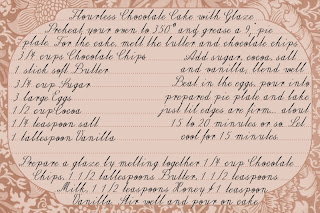 Flourless Chocolate Cake with Glaze
Preheat your oven to 350° and grease a 9, pie
plate. For the cake, melt the butter and chocolate chips
3/4 cups Chocolate Chips
1 stick soft Butter
3/4 cup Sugar
3 large Eggs
1/2 cup Cocoa
1/4 teaspoon salt
1 tablespoon Vanilla
Add sugar, cocoa, salt
and vanilla, blend well
Beat in the eggs, pour into
prepared pie plate and bake
just til edges are firm... about
15 to 20 minutes or so. Let
cool for 15 minutes.
Prepare a glaze by melting together 1/4 cup Chocolate
Chips, 1 1/2 tablespoons Butter, 1 1/2 teaspoons
Milk, 1 1/2 teaspoons Honey & 1 teaspoon
Vanilla. Stir well and pour on cake